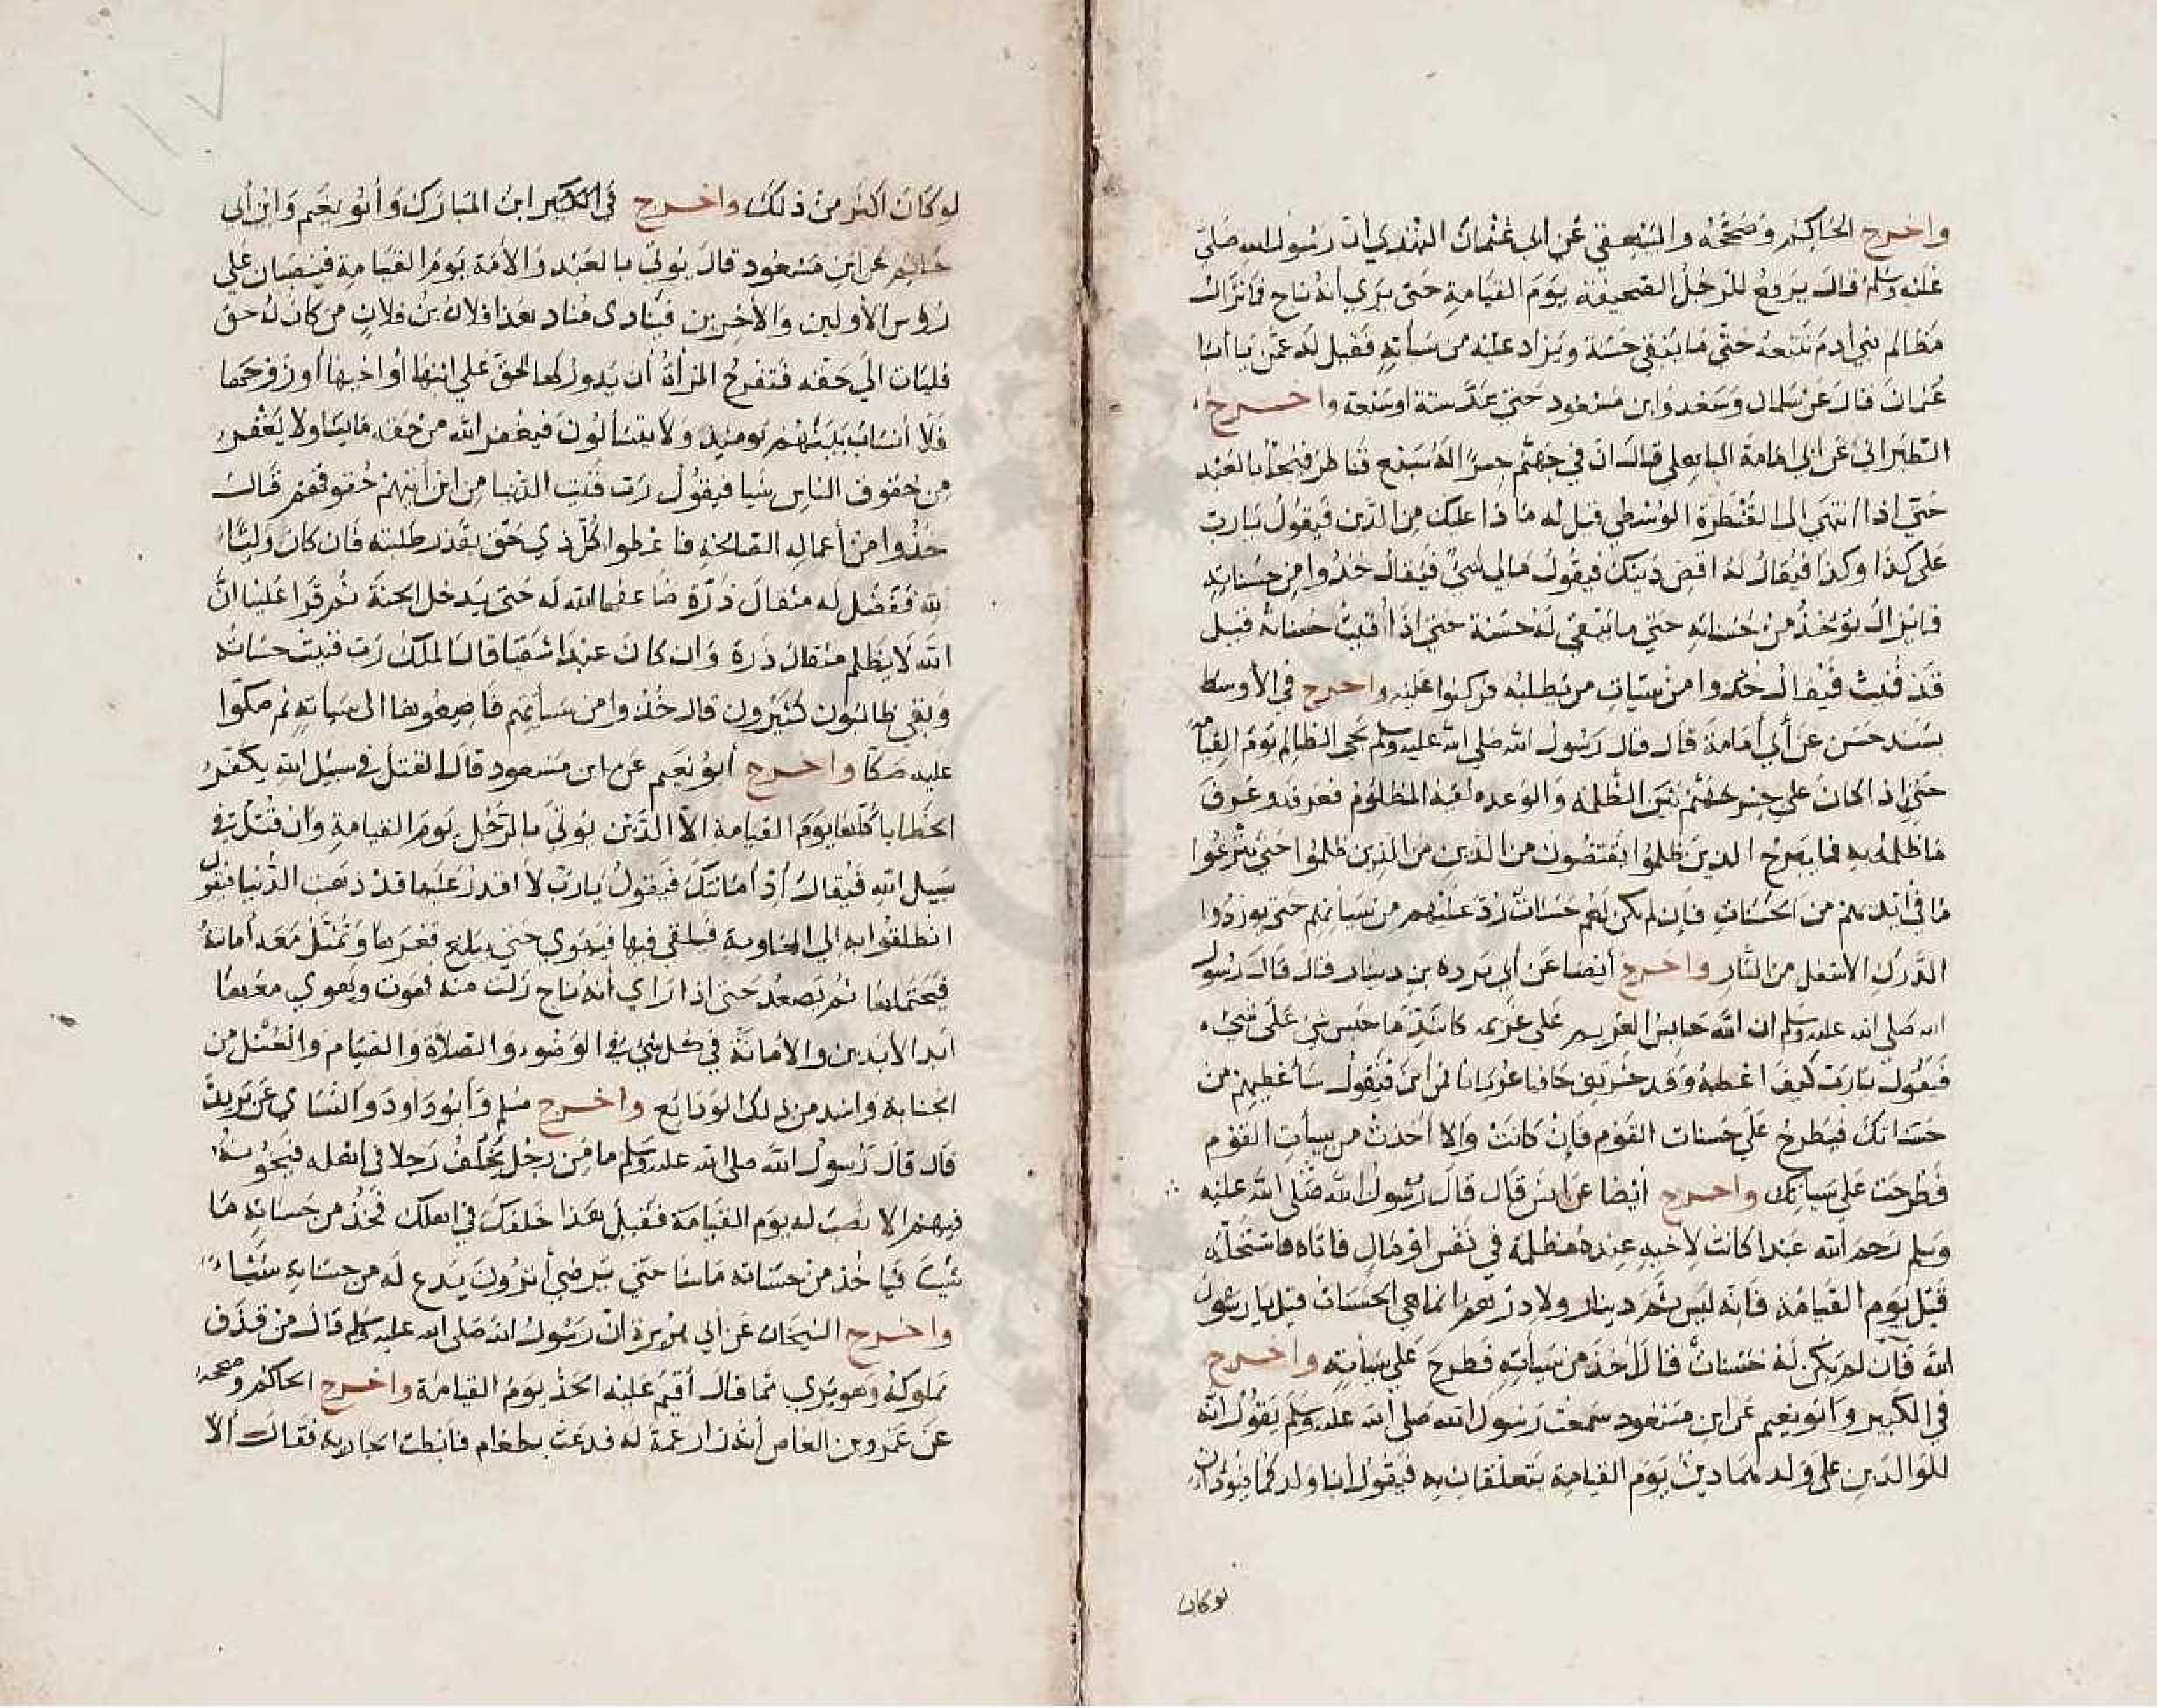 واخرج الحاكم وصححه والبيهقي عن ابي عثمان النهدي ان رسول الله صلى
عليه وسلم قال يرفع للرجل الصحيفة يوم القيامة حتى يري أنه ناج فما تزال
مظالم بني ادم تتبعه حتى ما يبقي حسنة ويزاد عليه من سيأته فقيل له عمن يا أبا
عثمان قال عن سلمان وسعد وابن مسعود حتى عد ستة او سبعة واخرج
الطبراني عن ابي امامة الباهلي قال ان في جهنم جسرا له سبع قناطر فيجأ بالعبد
حتى اذا انتهى الى القنطرة الوسطي قيل له ما ذا عليك من الدين فيقول يا رب
على كذا وكذا فيقال له اقض دينك فيقول مالي شئ فيقال خذوا من حسناته
فما يزال يؤخذ من حسناته حتى ما يبقي له حسنة حتى اذا أفنيت حسناته قيل
قد فنيت فيقال خذوا من سيات من يطلبه فركبوا عليه واخرج في الأوسط
بسند حسن عن أبي أمامة قال قال رسول الله صلى الله عليه وسلم يجي الظالم يوم القيامة
حتى اذا كان على جسر جهنم بين الظلمة والوعده لقيه المظلوم فعرفه وعرف
ما ظلمه به فما يبرح الذين ظلموا يقتصون من الذين من الذين ظلموا حتى ينزعوا
ما في أيديهم من الحسنات فإن لم يكن لهم حسنات رد عليهم من سيأتهم حتى يوردوا
الدرك الأسفل من النار واخرج أيضا عن أبي برده بن دينار قال قال رسول
الله صلى الله عليه وسلم ان الله حابس الغريم على غريمه كاشد ما حبس شئ على شئ
فيقول يا رب كيف اعطيه وقد حشرتني حافيا عريانا فمن أين فيقول سأعطيهم من
حسناتك فيطرح على حسنات القوم فإن كانت والا أخذت من سيأت القوم
فطرحت على سياتك واخرج أيضا عن انس قال قال رسول الله صلى الله عليه
وسلم رحم الله عبدا كانت لاخيه عنده مظلمة في نفس او مال فاتاه فاستحله
قبل يوم القيامة فانه ليس ثم دينار ولا درهم انما هي الحسنات قيل يا رسول
الله فإن لم يكن له حسنات قال اخذ من سيأته فطرح على سياته واخرج
في الكبير وابو نعيم عن ابن مسعود سمعت رسول الله صلى الله عليه وسلم يقول انه
للوالدين على ولدهما دين يوم القيامة يتعلقان به فيقول أنا ولدكما فيودان
لو كان
لو كان اكثر من ذلك واخرج في الكبير ابن المبارك وأبو نعيم وابن أبي
حاتم عن ابن مسعود قال يوتي بالعبد والأمة يوم القيامة فينصبان على
رؤس الأولين والأخرين فينادى مناد هذا فلان بن فلان من كان له حق
فليات الي حقه فتفرح المرأة أن يدور لها الحق على ابنها أو اخيها أو زوجها
فلا أنساب بينهم يومئذ ولا يتسألون فيغفر الله من حقه ما يشا ولا يغفر
من حقوق الناس شيا فيقول رب فنيت الدنيا من اين أتيهم حقوقهم قال
خذوا من أعماله الصالحة فاعطوا كل ذي حق بقدر طلبته فان كان وليا
لله ففضل له مثقال ذرة ضاعفها الله له حتى يدخل الجنة ثم قرا علينا ان
الله لا يظلم مثقال ذرة وان كان عبدا شقيا قال الملك رب فنيت حسناته
وبقي طالبون كثيرون قال خذوا من سيأتهم فاضيفوها الى سياته ثم صكوا
عليه صكا واخرج أبو نعيم عن ابن مسعود قال القتل في سبيل الله يكفر
الخطايا كلها يوم القيامة الا الدين يوتي بالرجل يوم القيامة وان قتل في
سبيل الله فيقال أد أمانتك فيقول يا رب لا اقدر عليها قد ذهبت الدنيا فيقول
انطلقوا به الي الهاوية فيلقي فيها فيهوي حتى يبلغ قعرها وتمثل معه أمانة
فيحتملها ثم يصعد حتى اذا رأي أنه ناج زلت منه فهوت ويهوي معها
ابد الأبدين والأمانة في كل شئ في الوضوء والصلاة والصيام والغسل من
الجنابة واشد من ذلك الودائع واخرج مسلم وأبو داود والنسائي عن بريدة
قال قال رسول الله صلى الله عليه وسلم ما من رجل يخلف رجلا في اهله فيخونه
فيهم الا نصب له يوم القيامة فقيل هذا خلفك في اهلك فخذ من حسناته ما
شيت فياخذ من حسناته ماشا حتى يرضي أترون يدع له من حسناته شياء
واخرج الشيخان عن أبي هريرة ان رسول الله صلى الله عليه وسلم قال من قذف
مملوكه وهو بري مما قال أقيم عليه الحد يوم القيامة واخرج الحاكم وصححه
عن عمرو بن العاص أنه زار عمة له فدعت بطعام فابطت الجارية فقالت ألا